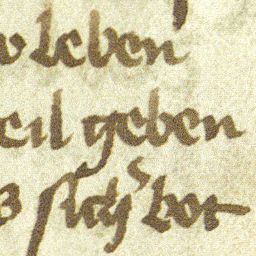 leben
eil geben
sich bot